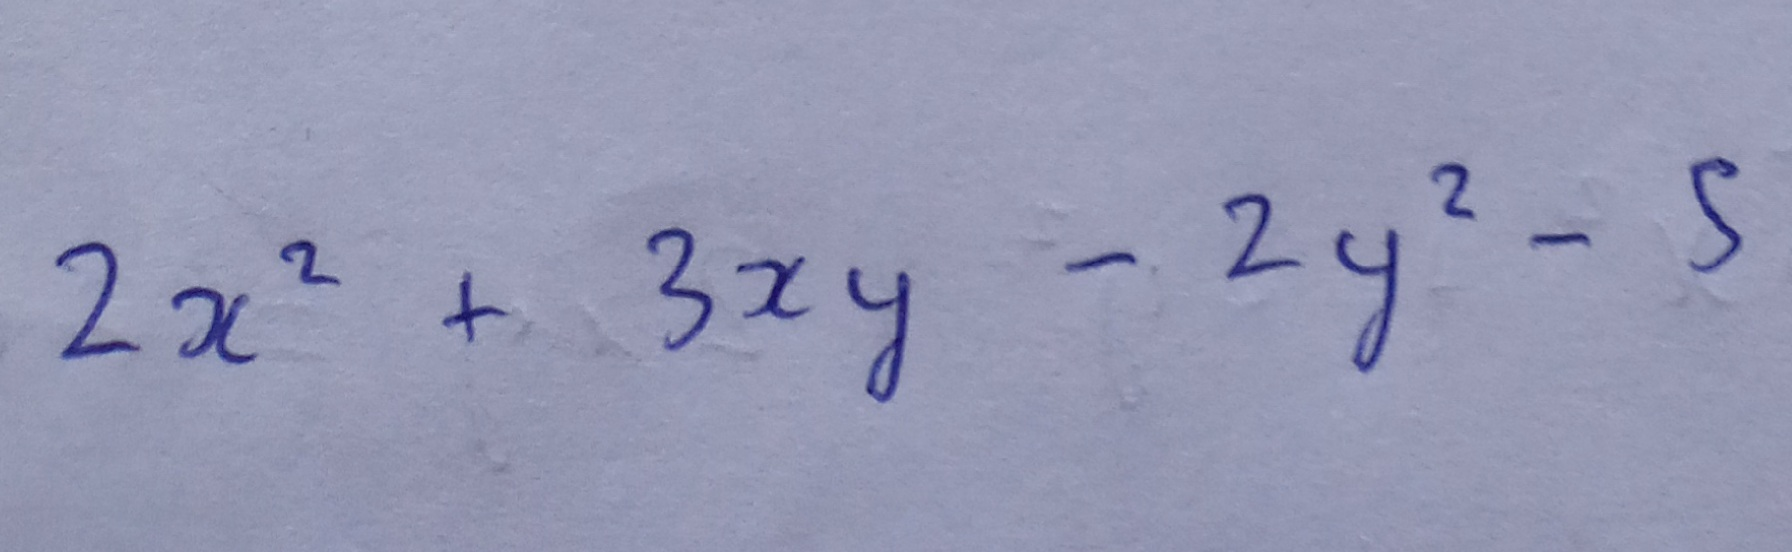 2x² + 3xy - 2y² - 5